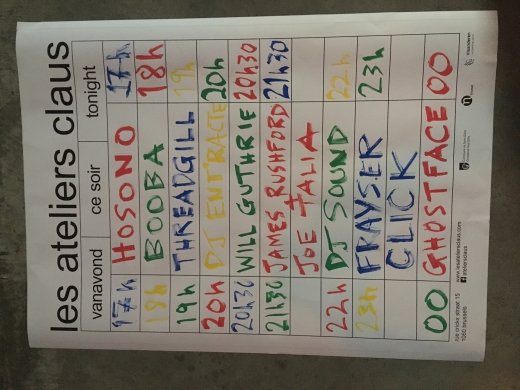 les ateliers claus
vanavond ce soir tonight
17h HOSONO 17h
18h BOOBA 18h
19h THREADGILL 19h
20h DJ ENTRACTE 20h
20h30 WILL GUTHRIE 20h30
21h30 JAMES RUSHFORD 21h30
JOE TALIA
22h DJ SOUND 22h
23h FRAYSER 23h
CLICK
00 GHOSTFACE 00
rue crickx straat 15 www.lesateliersclaus.com
1060 brussels ateliersclaus
Vlaanderen